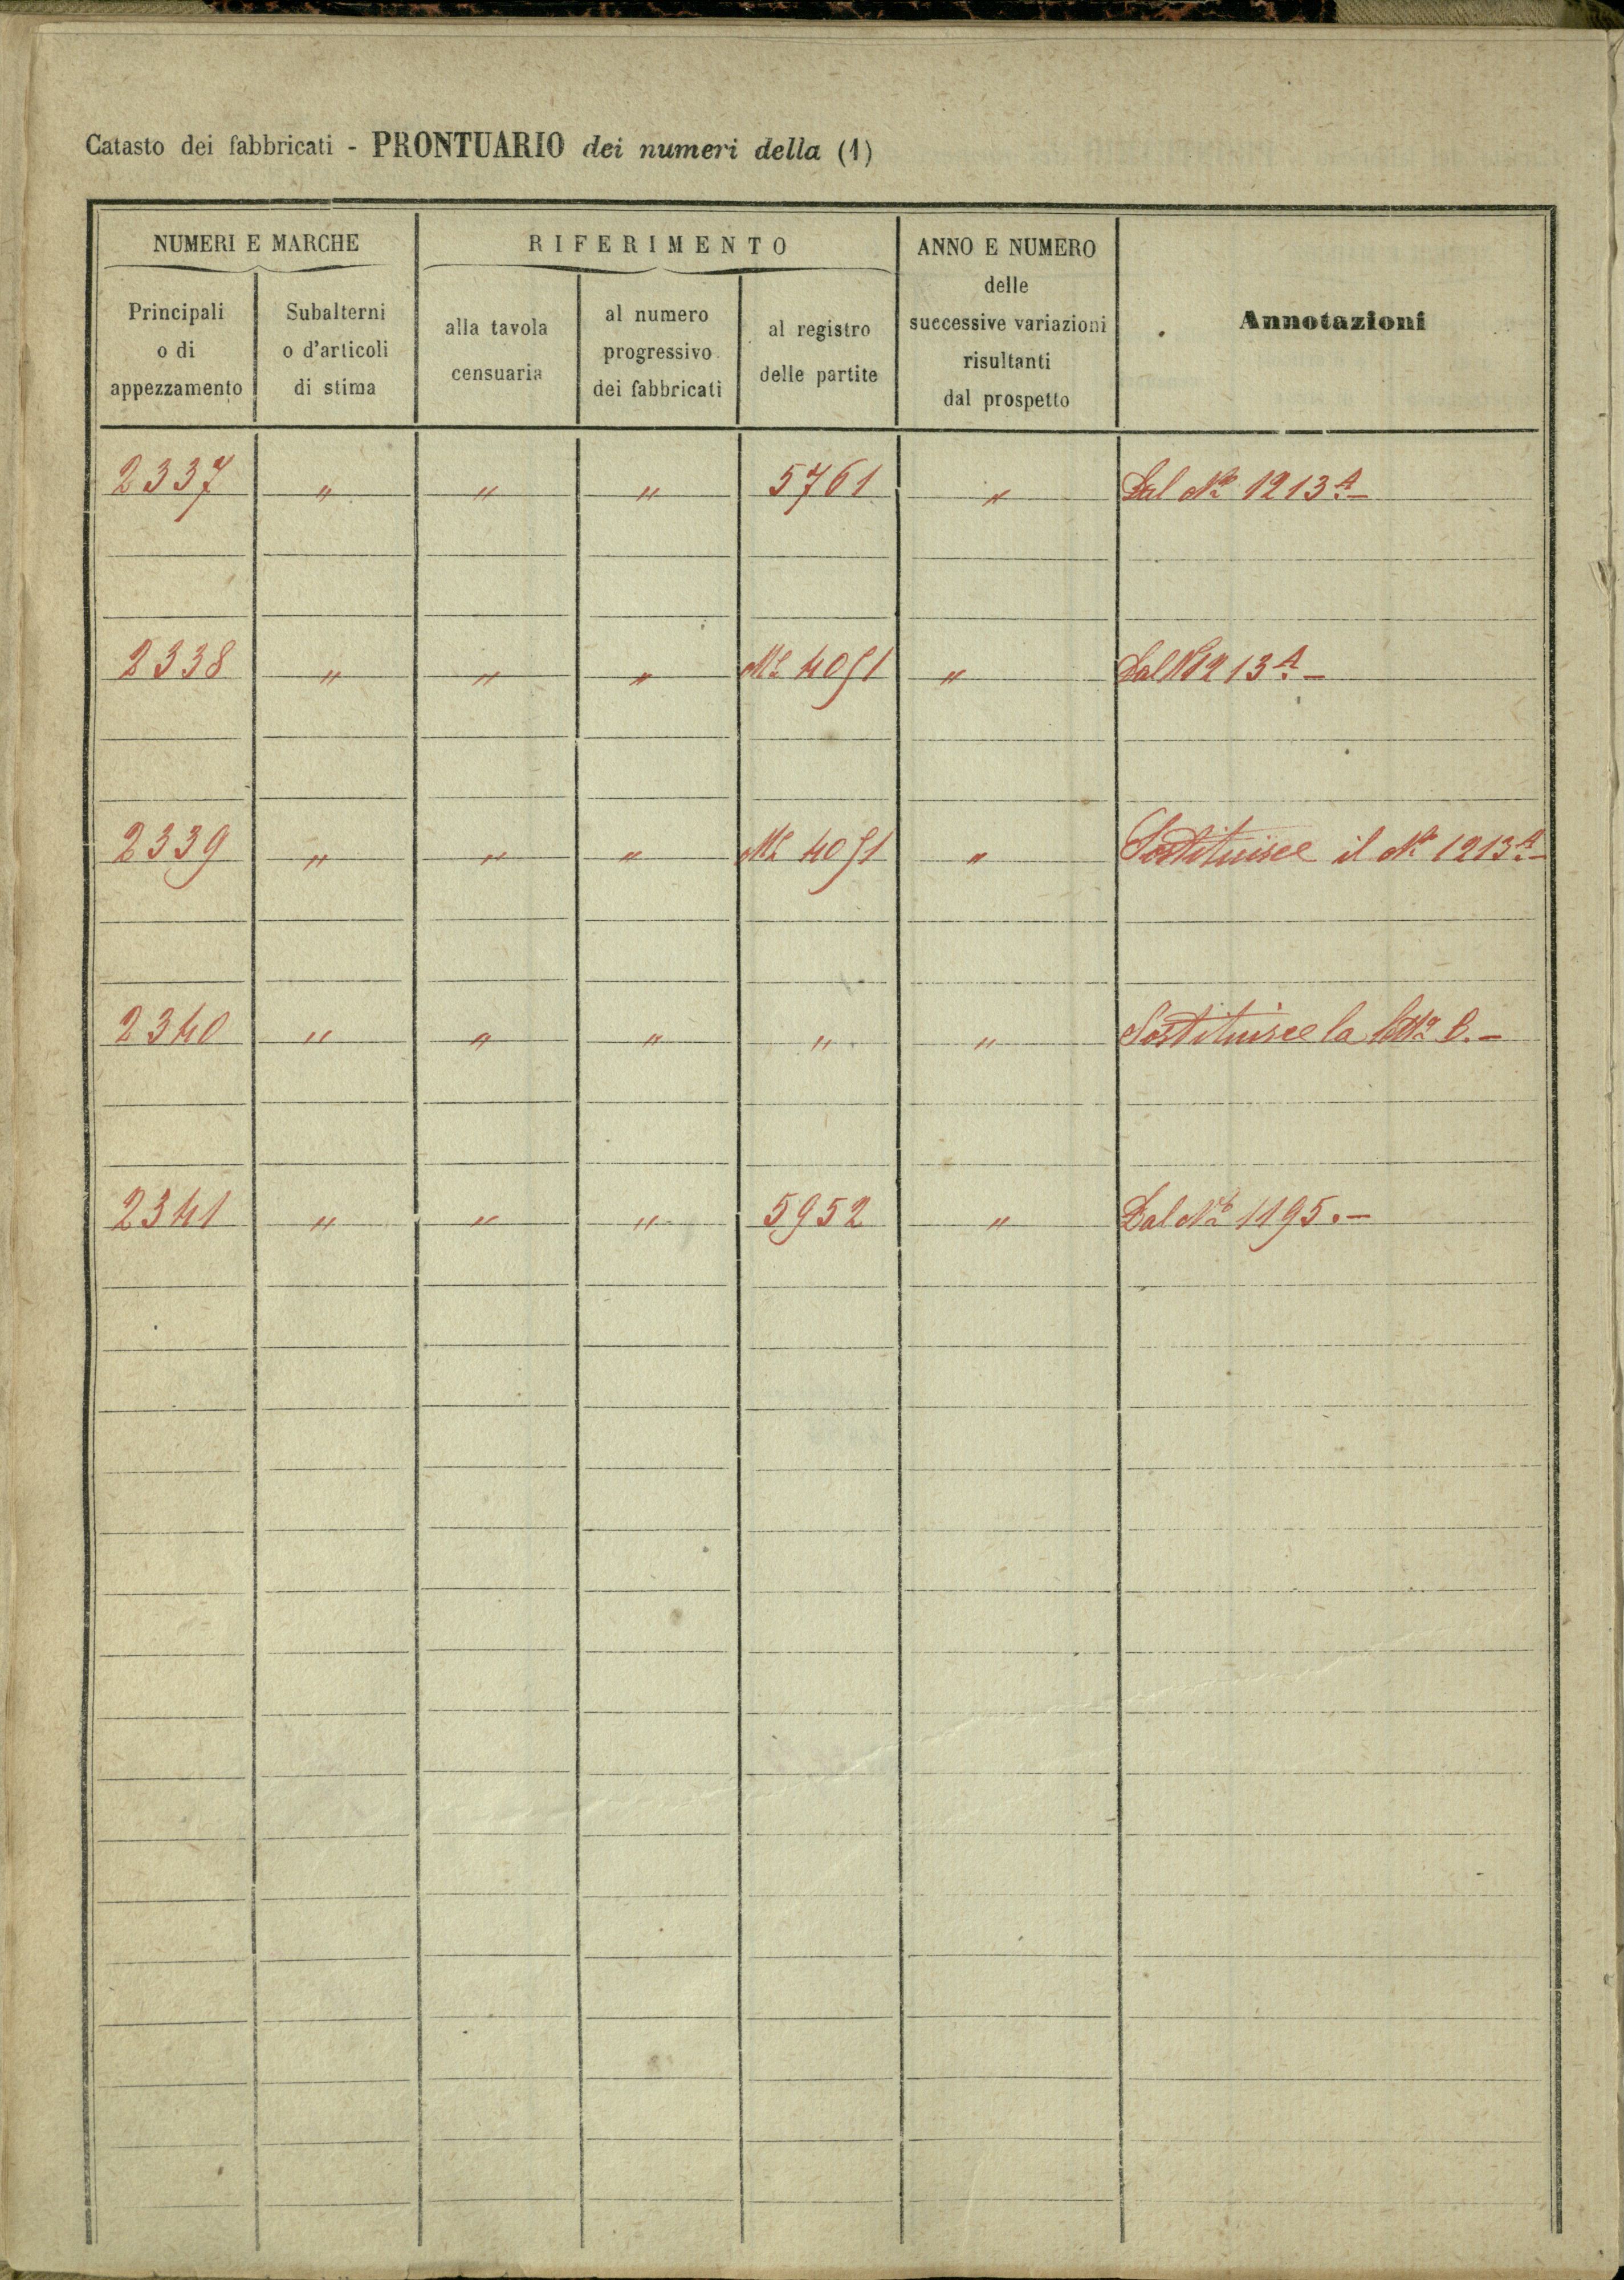 Catasto dei fabbricati - PRONTUARIO dei numeri della (1)
NUMERI E MARCHE
RIFERIMENTO
ANNO E NUMERO
delle
successive variazioni
risultanti
dal prospetto
Annotazioni
Principali
o di
appezzamento
Subalterni
o d'articoli
di stima
alla tavola
censuaria
al numero
progressivo
dei fabbricati
al registro
delle partite
2337 " " " 5761 " Dal No 1213 A
2338 " " " 4051 " Dal N 1213 A. -
2339 " " " 4051 " Sostituisce il No 1213 A. -
2340 " " " " " Sostituisce la B. -
2341 " " " 5952 " Dal No 1195. -